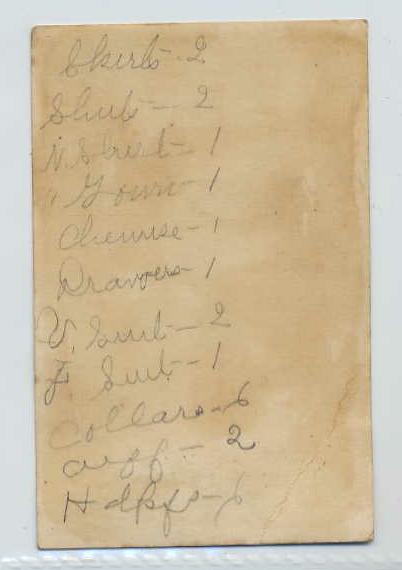 Skirts - 2
Shirts - 2
N. Shirt - 1
" Gown - 1
Chemise - 1
Drawers - 1
U. Suit - 2
Suit - 1
Collars - 6
Cuff - 2
Hdkfs - 6